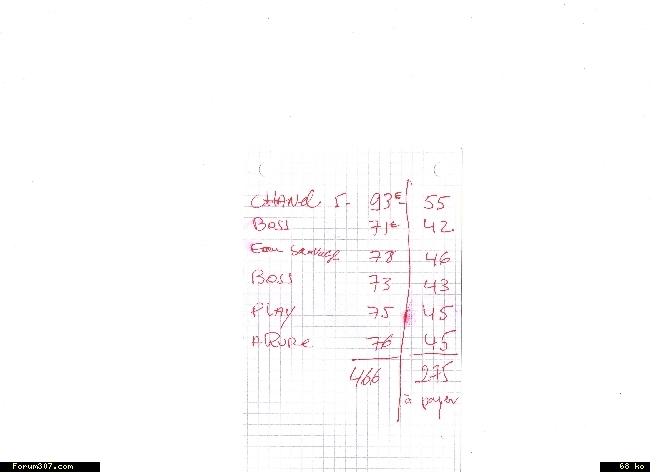 CHANEL 5- 93€- 55
BOSS 71€ 42
Eau Sauvage 78 46
BOSS 73 43
PLAY 75 45
76 45
466 275
à payer
Forum307.com 68 ko